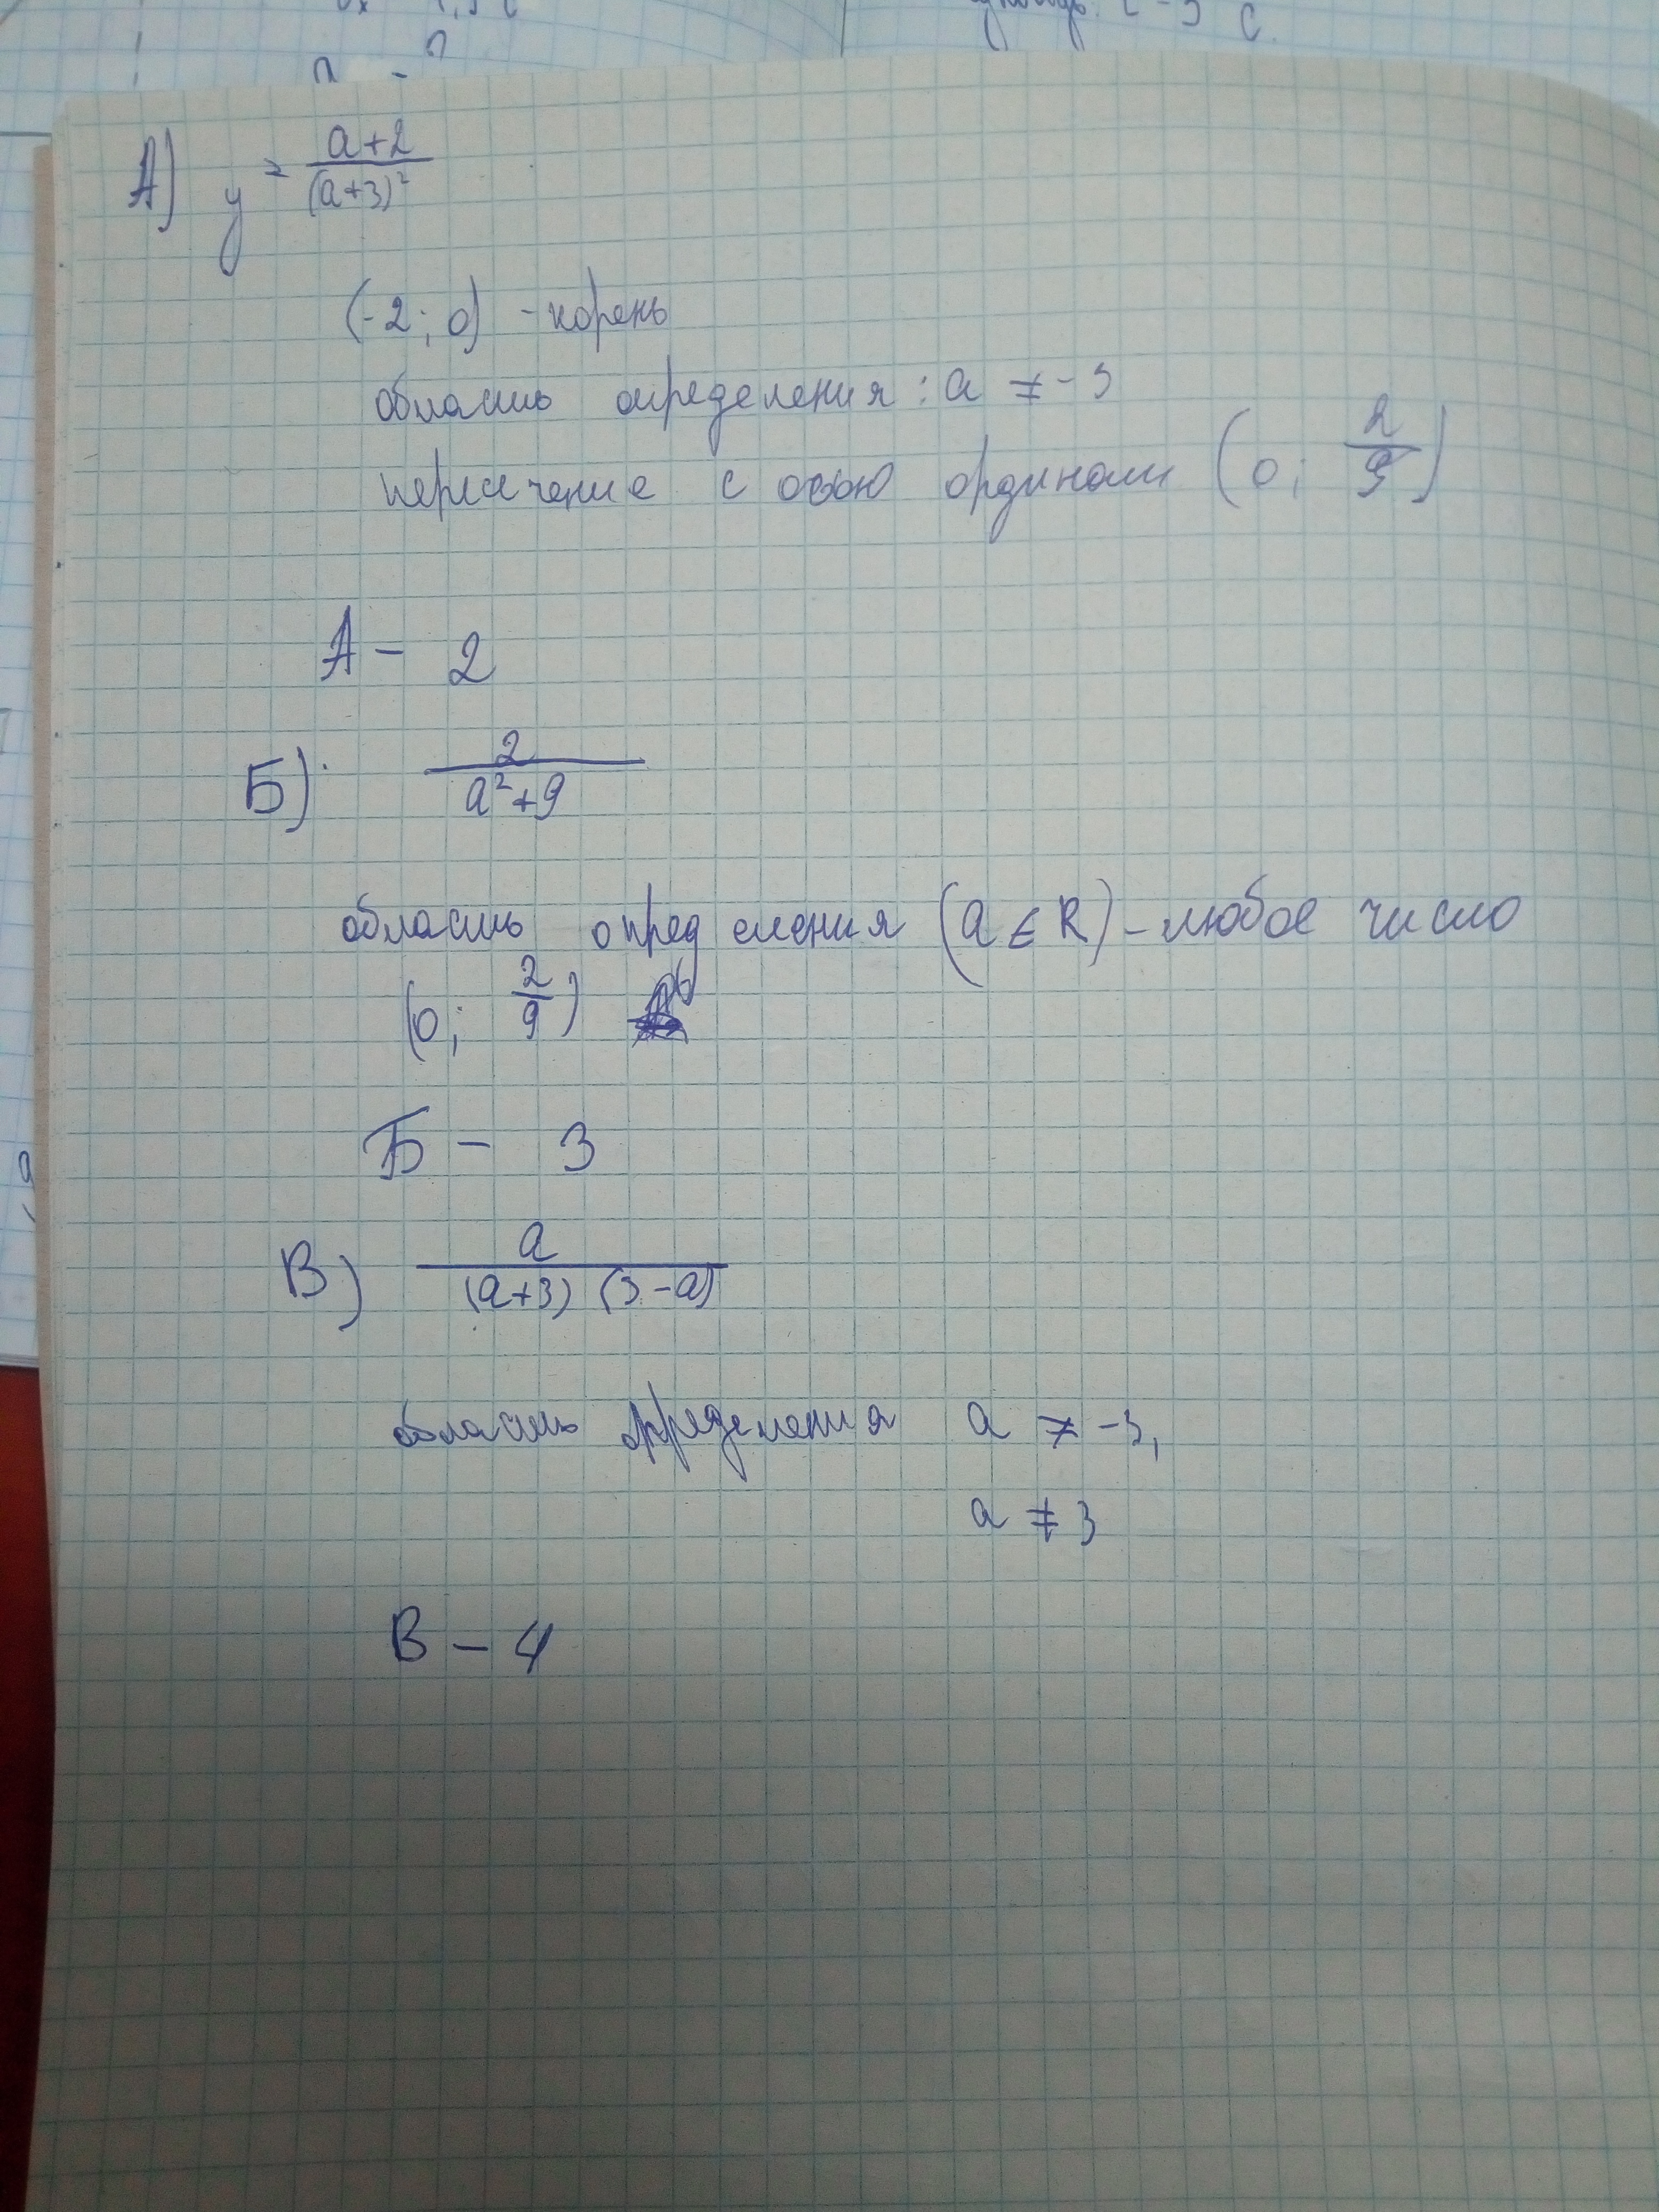 А) y = (a+2)/(a+3)²
(-2; 0) - корень
область определения: a ≠ -3
пересечение с осью ординат (0; 2/9)
А - 2
Б) 2/(a²+9)
область определения (a ∈ R) - любое число
(0; 2/9)
Б - 3
В) a/((a+3)(3-a))
область определения a ≠ -3,
a ≠ 3
В - 4